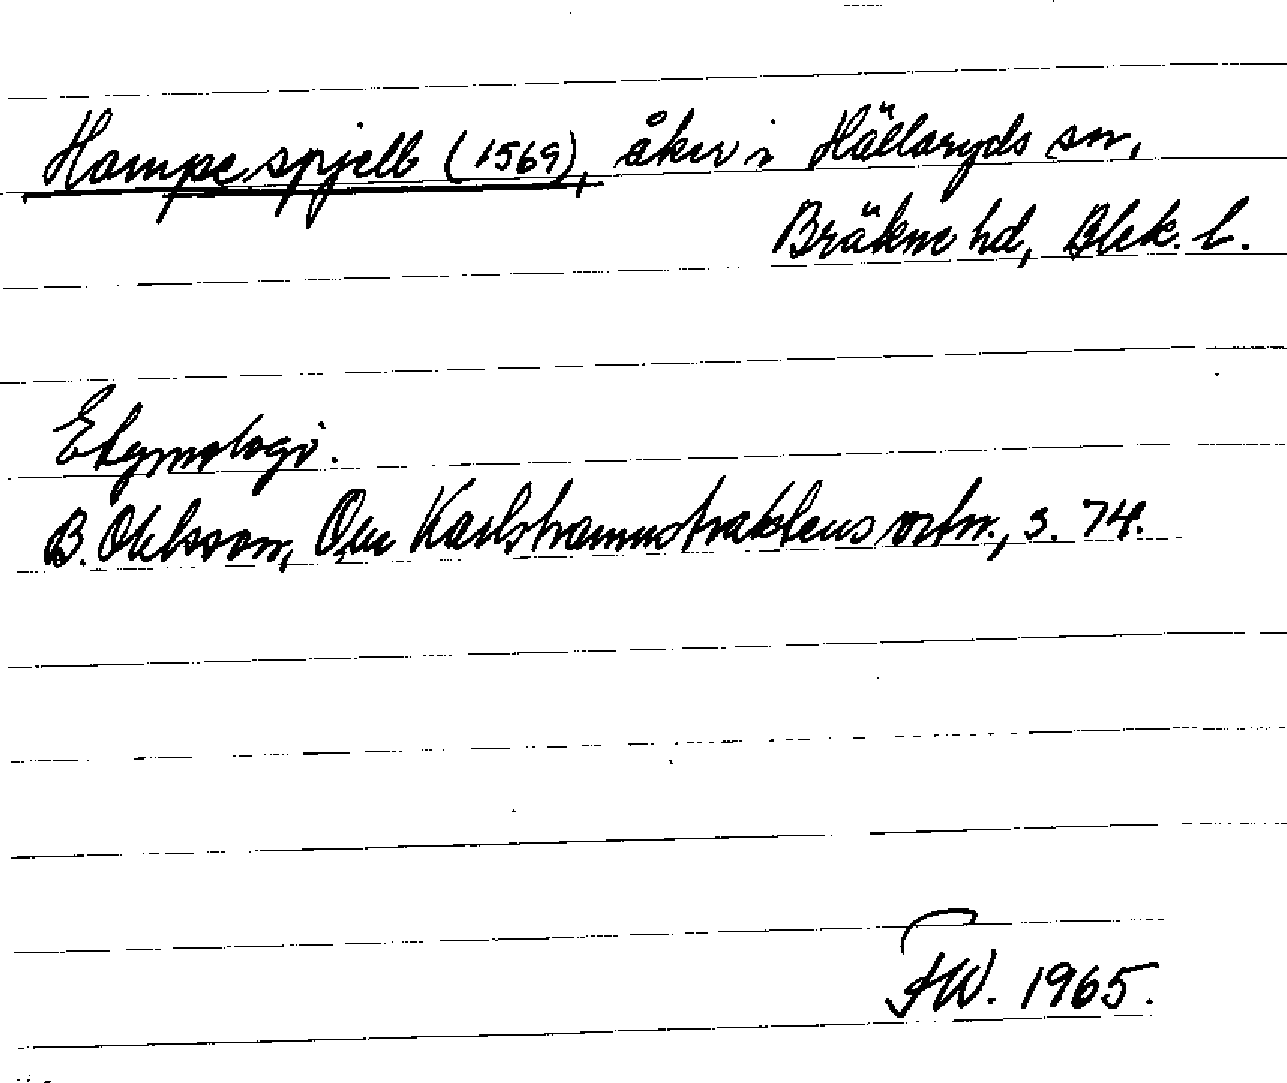 Hampespjell (1569), åker i Hällaryds sn,
Bräkne hd, Blek. l.
Etymologi.
B. Ohlsson, Om Karlshamnstraktens ortn., s. 74.
FW. 1965.